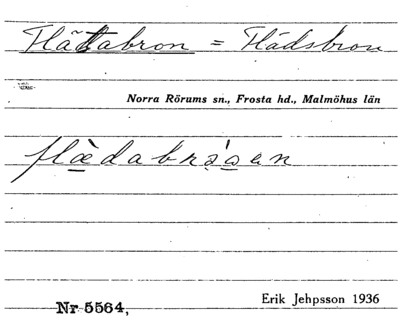 Flätabron = Flädsbron
Norra Rörums sn., Frosta hd., Malmöhus län
flädabråaen
Nr 5564,
Erik Jehpsson 1936